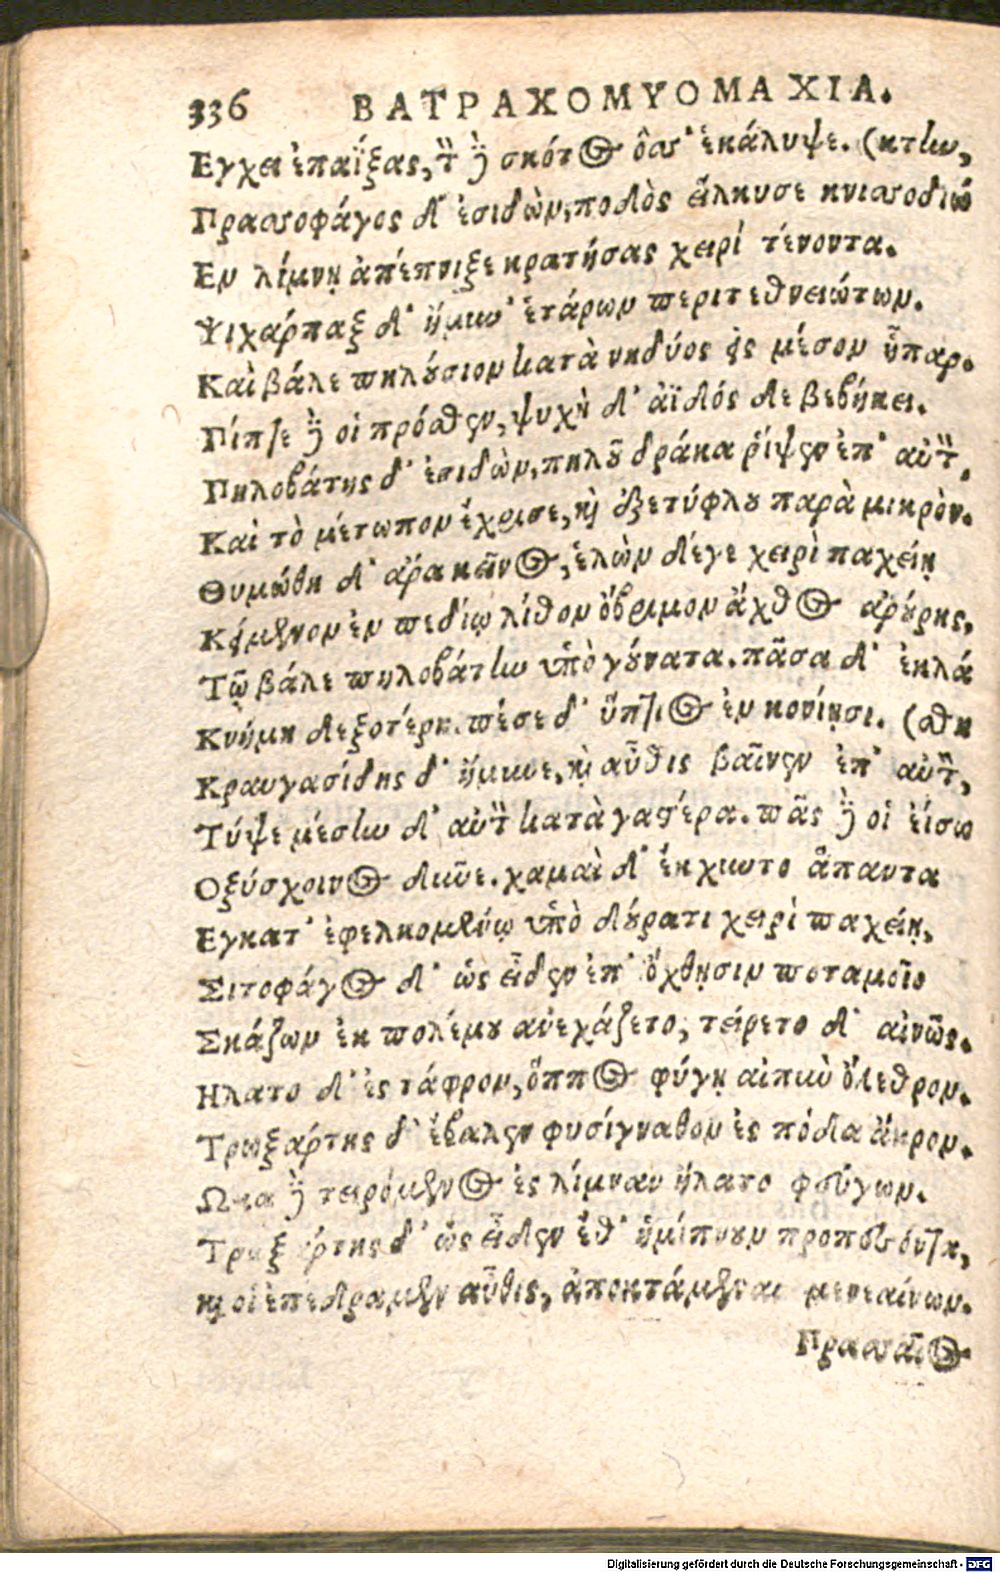 336 ΒΑΤΡΑΧΟΜΥΟΜΑΧΙΑ.
Εγχει ἐπαΐξας, τὸν δὲ σκότος ὄσσ' ἐκάλυψε. (κτίω,
Πρασσοφάγος δ' ἐσιδὼν, ποδὸς εἵλκυσε κνισσοδιώ
Εν λίμνῃ ἀπέπνιξε κρατήσας χειρὶ τένοντα.
Ψιχάρπαξ δ' ἤμυν' ἑτάρων περιτεθνειώτων.
Καὶ βάλε πηλούσιον κατὰ νηδύος ἐς μέσον ἧπαρ.
Πίπτε δέ οἱ πρόσθεν, ψυχὴ δ' ἀϊδός δε βεβήκει.
Πηλοβάτης δ' ἐσιδὼν, πηλοῦ δράκα ῥίψεν ἐπ' αὐτὸν,
Καὶ τὸ μέτωπον ἔχρισε, καὶ ἐξετύφλου παρὰ μικρὸν.
Θυμώθη δ' ἄρα κεῖνος, ἑλὼν δέ γε χειρὶ παχείῃ
Κείμενον ἐν πεδίῳ λίθον ὄβριμον ἄχθος ἀρούρης,
Τῷ βάλε πηλοβάτην ὑπὸ γούνατα. πᾶσα δ' ἐκλά
Κνήμη δεξιτέρη. πέσε δ' ὕπτιος ἐν κονίῃσι. (σθη
Κραυγασίδης δ' ἤμυνε, καὶ αὖθις βαῖνεν ἐπ' αὐτὸν,
Τύψε μέσην δ' αὐτὸν κατὰ γαστέρα. πᾶς δέ οἱ εἴσω
Οξύσχοινος δῦνε. χαμαὶ δ' ἔκχυντο ἅπαντα
Εγκατ' ἐφελκομένῳ ὑπὸ δούρατι χειρὶ παχείῃ,
Σιτοφάγος δ' ὡς εἶδεν ἐπ' ὄχθῃσιν ποταμοῖο
Σκάζων ἐκ πολέμου ἀνεχάζετο, τείρετο δ' αἰνῶς.
Ηλατο δ' ἐς τάφρον, ὅππως φύγῃ αἰπὺν ὄλεθρον.
Τρωξάρτης δ' ἔβαλεν φυσίγναθον ἐς πόδα ἄκρον.
Ωκα δὲ τειρόμενος ἐς λίμναν ἥλατο φεύγων.
Τρωξάρτης δ' ὡς εἶδεν ἔθ' ἡμίπνουν προπεσόντα,
καὶ οἱ ἐπέδραμεν αὖθις, ἀποκτάμεναι μενεαίνων.
Πρασσαῖος
Digitalisierung gefördert durch die Deutsche Forschungsgemeinschaft - DFG